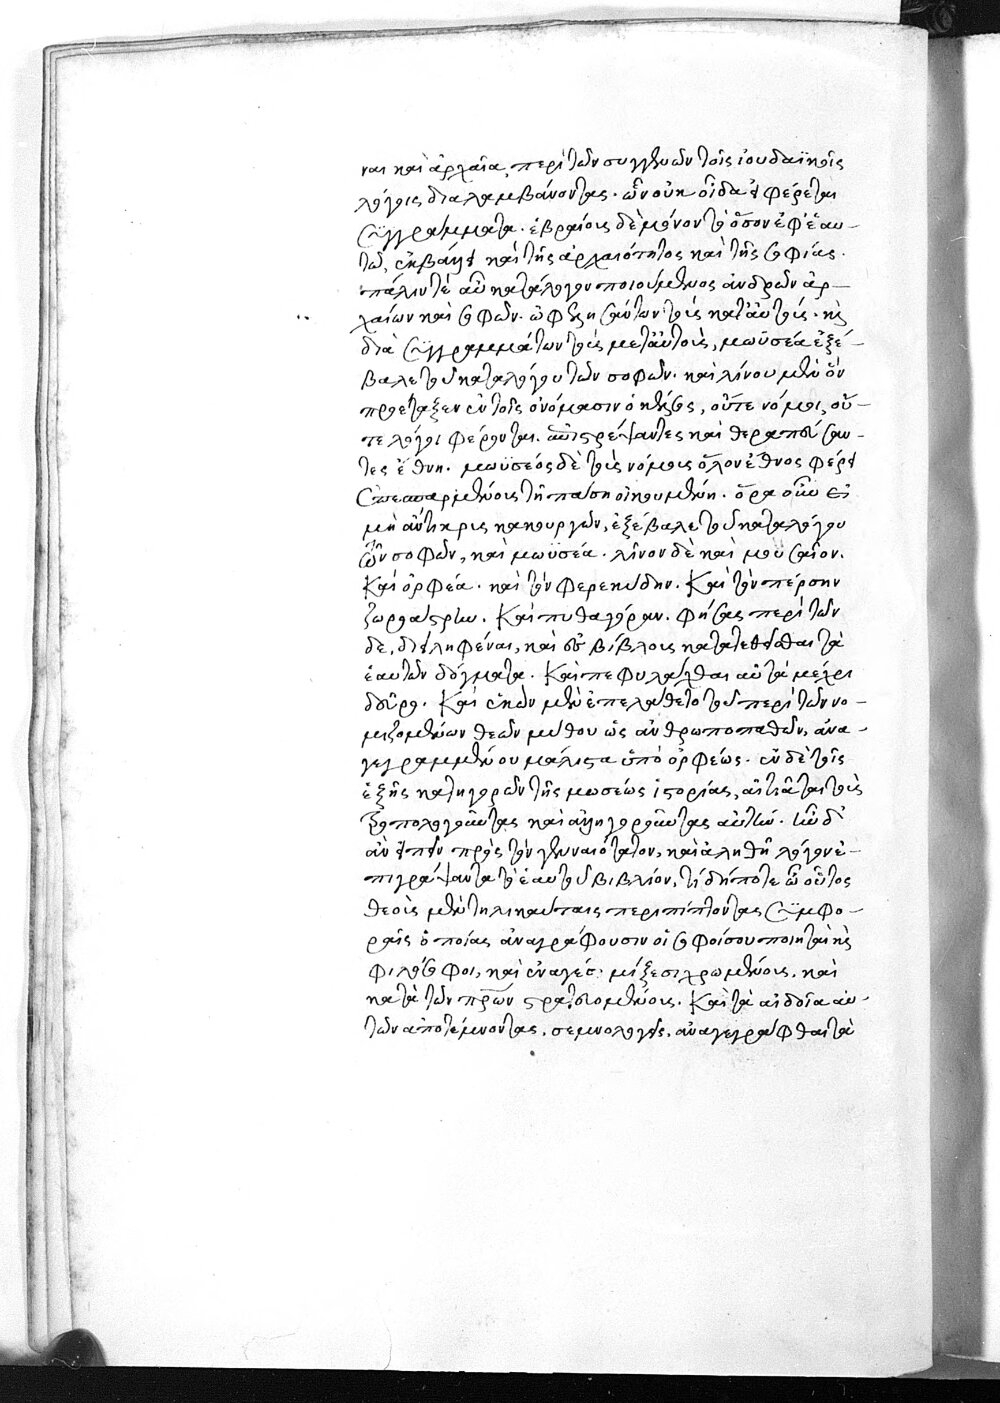 ναι καὶ ἀρχαῖα, περὶ τῶν συγγενῶν τοῖς ἰουδαϊκοῖς
λόγοις διαλαμβάνοντας. ὧν οὐκ οἶδα εἰ φέρεται
συγγράμματα. ἑβραίοις δὲ μόνον τὸ ὅσον ἐφ' ἑαυ-
τῷ, ἐκβάλλει καὶ τῆς ἀρχαιότητος καὶ τῆς σοφίας.
πάλιν τὲ αὖ κατάλογον ποιούμενος ἀνδρῶν ἀρ-
χαίων καὶ σοφῶν. ὠφελησάντων τοὺς κατ' αὐτοὺς. καὶ
διὰ συγγραμμάτων τοὺς μετ' αὐτοὺς, μωϋσέα ἐξέ-
βαλε τοῦ καταλόγου τῶν σοφῶν. καὶ λίνου μὲν ὃν
προέταξεν ἐν τοῖς ὀνόμασιν ὁ κέλσος, οὔτε νόμοι, οὔ-
τε λόγοι φέρονται. ἐπιστρέψαντες καὶ θεραπεύσαν-
τες ἔθνη. μωϋσέος δὲ τοὺς νόμους ὅλον ἔθνος φέρει
ἐπεσπαρμένοις τῇ πάσῃ οἰκουμένῃ. ὅρα οὖν εἰ
μὴ ἄντικρις κακουργῶν, ἐξέβαλε τοῦ καταλόγου
τῶν σοφῶν, καὶ μωϋσέα. λῖνον δὲ καὶ μουσαῖον.
Καὶ ὀρφέα. καὶ τὸν φερεκύδην. Καὶ τὸν πέρσην
ζωροάστρην. Καὶ πυθαγόραν. φήσας περὶ τῶν
δε, διειληφέναι, καὶ ἐς βίβλους κατατεθεῖσθαι τὰ
ἑαυτῶν δόγματα. Καὶ πεφυλάχθαι αὐτὰ μέχρι
δεῦρο. Καὶ ἑκὼν μὲν ἐπελάθετο τοῦ περὶ τῶν νο-
μιζομένων θεῶν μύθου ὡς ἀνθρωποπαθῶν, ἀνα-
γεγραμμένου μάλιστα ὑπὸ ὀρφέως. ἐν δὲ τοῖς
ἑξῆς κατηγορῶν τῆς μωσέως ἱστορίας, αἰτιᾶται τοὺς
τροπολογοῦντας καὶ ἀλληγοροῦντας αὐτήν. ἦν δ'
ἂν εἰπεῖν πρὸς τὸν γενναιότατον, καὶ ἀληθῆ λόγον ἐ-
πιγράψαντα τὸ ἑαυτοῦ βιβλίον, τί δήποτε ὦ οὗτος
θεοὺς μὲν τηλικαύταις περιπίπτοντας συμφο-
ραῖς ὁποίας ἀναγράφουσιν οἱ σοφοί σου ποιηταὶ καὶ
φιλόσοφοι, καὶ ἐναγέσι μίξεσι χρωμένους, καὶ
κατὰ τῶν πρων στρατευομένους. Καὶ τὰ αἰδοῖα αὐ-
τῶν ἀποτέμνοντας, σεμνολογεῖς, ἀναγεγράφθαι τὰ